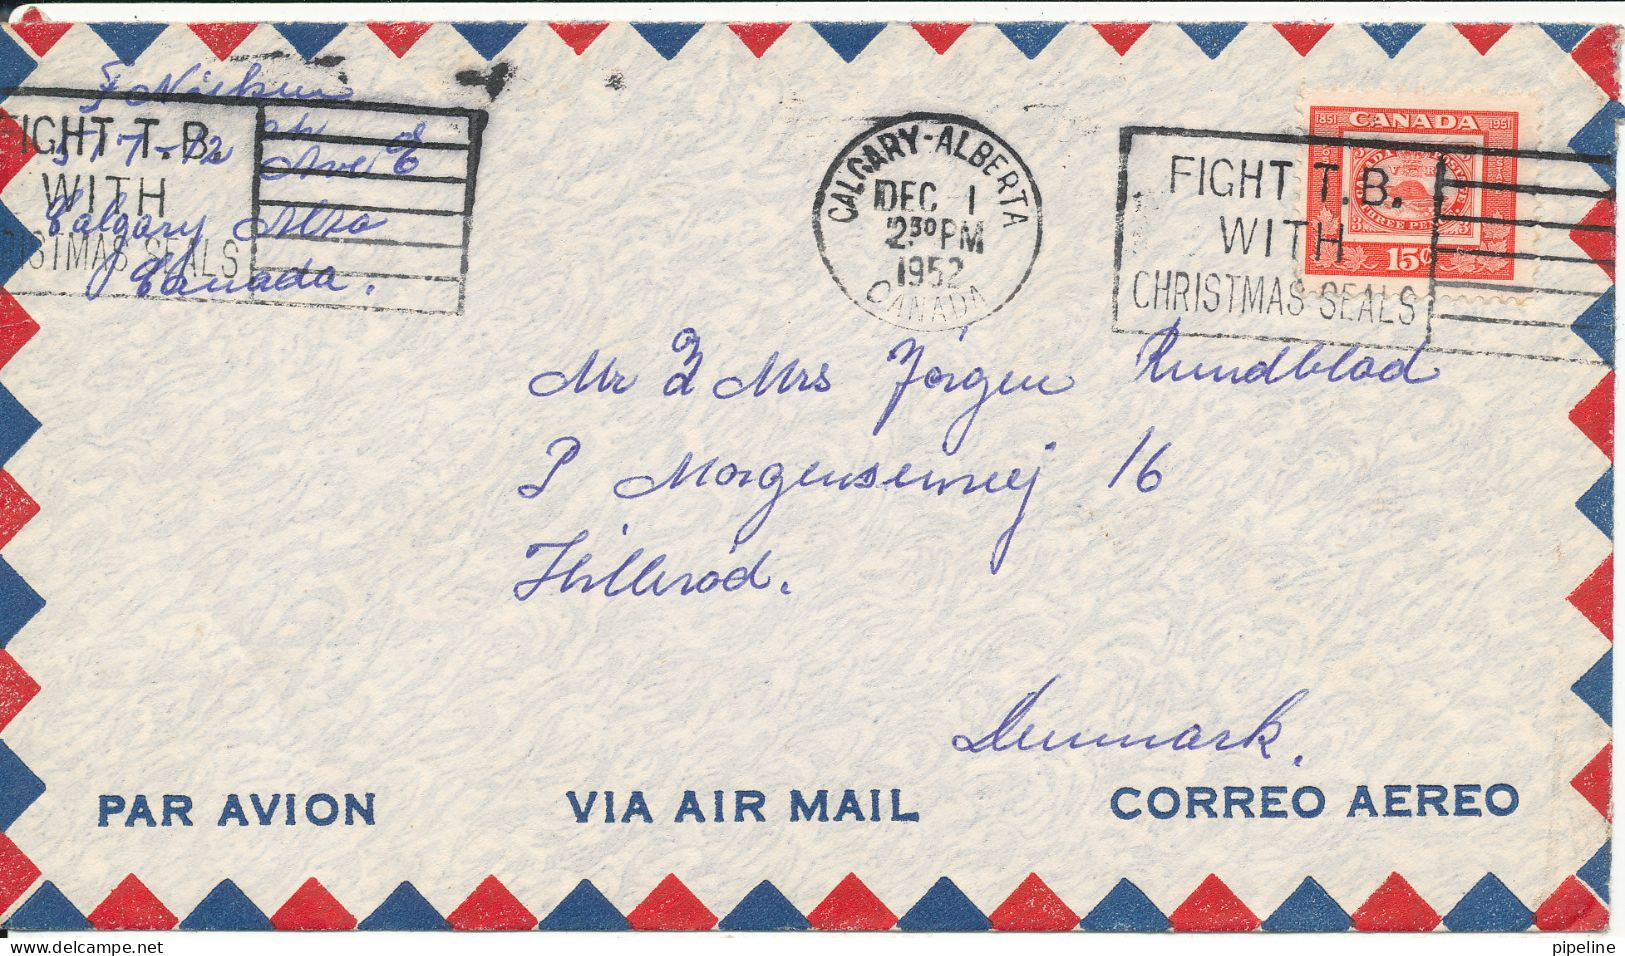 517-12 Ave E
Calgary Alta
Canada.
FIGHT T.B.
WITH
CHRISTMAS SEALS
CALGARY-ALBERTA
DEC 1
2 30 PM
1952
CANADA
FIGHT T.B.
WITH
CHRISTMAS SEALS
1851 CANADA 1951
THREE PENCE
15¢
Mr & Mrs Jörgen Rundblad
P Morgensenvej 16
Hilleröd.
Denmark.
PAR AVION
VIA AIR MAIL
CORREO AEREO
pipeline
www.delcampe.net